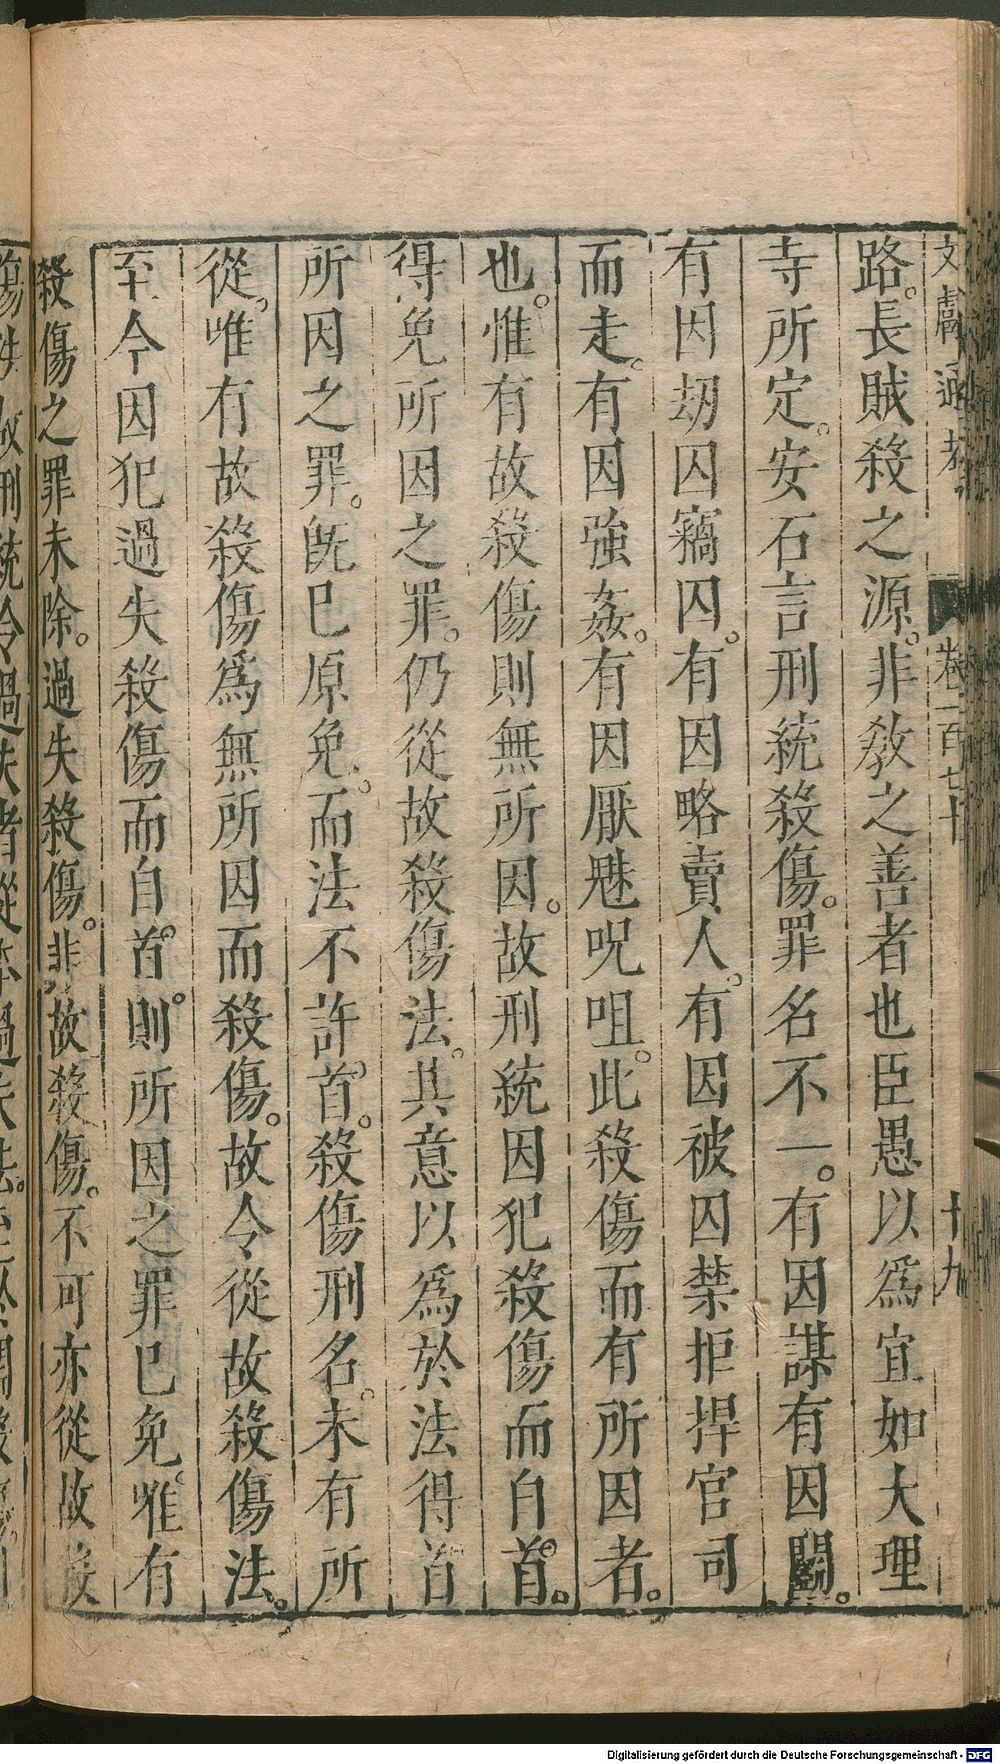 文獻通考 卷一百七十 十九
路。長賊殺之源。非教之善者也臣愚以爲宜如大理
寺所定。安石言刑統殺傷。罪名不一。有因謀有因鬭。
有因刼囚竊囚。有因略賣人。有因被囚禁拒捍官司
而走。有因強姦。有因厭魅呪咀。此殺傷而有所因者。
也。惟有故殺傷則無所因。故刑統因犯殺傷而自首。
得免所因之罪。仍從故殺傷法。其意以爲於法得首
所因之罪。旣已原免。而法不許首。殺傷刑名。未有所
從。唯有故殺傷爲無所因而殺傷。故令從故殺傷法。
至今因犯過失殺傷而自首。則所因之罪已免。唯有
殺傷之罪未除。過失殺傷。非故殺傷。不可亦從故殺
刑統令過失者從本過失法。
Digitalisierung gefördert durch die Deutsche Forschungsgemeinschaft - DFG